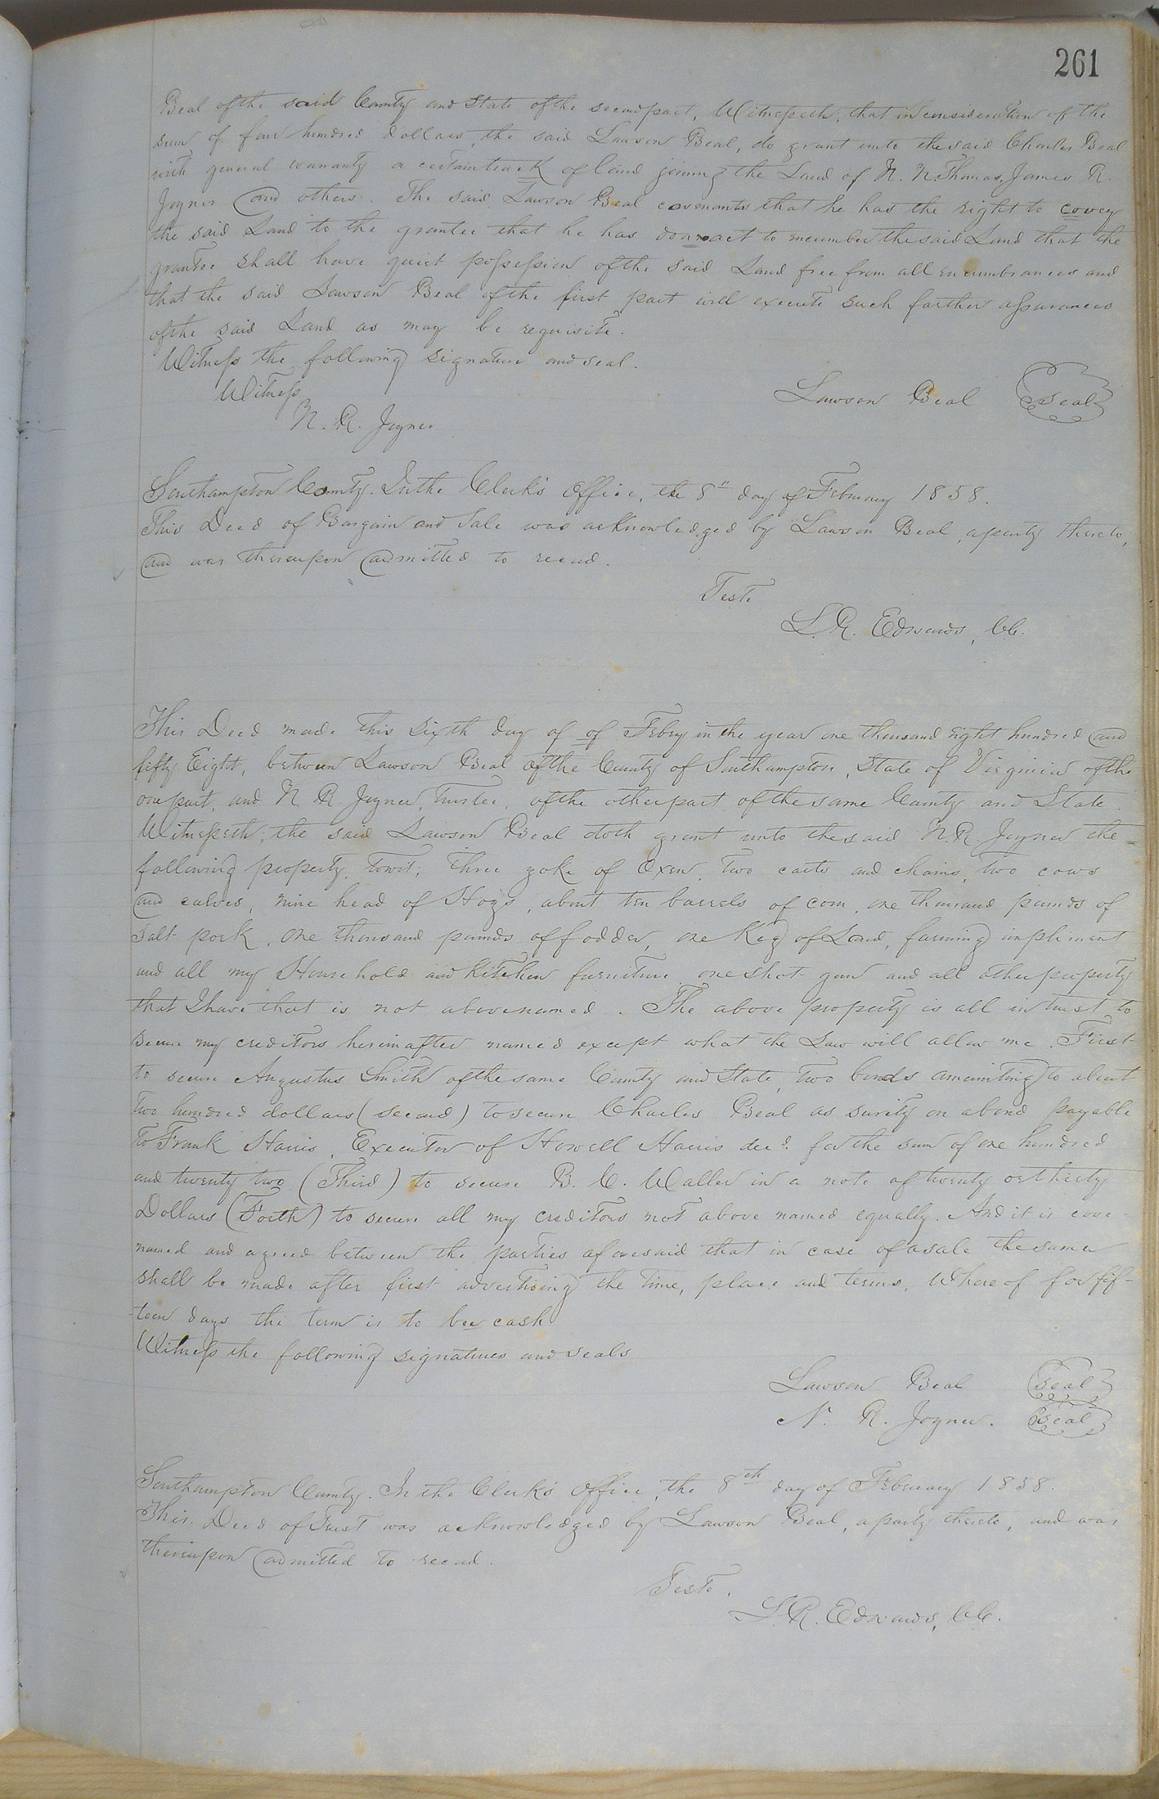 261
Beal of the said County and State of the second part, Witnesseth, that in consideration of the
sum of four hundred dollars, the said Lawson Beal, do grant unto the said Charles Beal
with general warranty a certain track of land joining the Land of N. N. Thomas, James R.
Joyner and others. The said Lawson Beal covenants that he has the right to covey
the said Land to the grantee that he has don no act to incumber the said Land that the
grantee shall have quiet possession of the said Land free from all incumbrances and
that the said Lawson Beal of the first part will execute such farther assurances
of the said Land as may be requisite.
Witness the following signature and seal.
Witness Lawson Beal Seal
N. R. Joyner
Southampton County. In the Clerk's Office, the 8" day of February 1858.
This Deed of Bargain and Sale was acknowledged by Lawson Beal, a party thereto,
and was thereupon admitted to record.
Teste
L. R. Edwards, CC.
This Deed made this sixth day of of Febry in the year one thousand eight hundred and
fifty Eight, between Lawson Beal of the County of Southampton, State of Virginia of the
one part, and N. R. Joyner, Trustee, of the other part of the same County and State
Witnesseth, the said Lawson Beal doth grant unto the said N. R. Joyner the
following property, towit; three yoke of Oxen, two carts and chains, two cows
and calves, nine head of Hogs, about ten barrels of corn, one thousand pounds of
salt pork, one thousand pounds of fodder, one Keg of Lard, farming impliment
and all my House hold and Kitchen furniture one shot gun and all other property
that I have that is not above named. The above property is all in trust to
secure my creditors hereinafter named except what the Law will allow me. First
to secure Augustus Smith of the same County and State, two bonds amounting to about
two hundred dollars (second) to secure Charles Beal as surity on a bond payable
to Frank Harris, Executor of Howell Harris decd. for the sum of one hundred
and twenty two (Third) to secure B. C. Waller in a note of twenty or thirty
Dollars (Forth) to secure all my creditors not above named equally. And it is cove-
nanted and agreed between the parties aforesaid that in case of a sale the same
shall be made after first advertising the time, place and terms, whereof for fif-
-teen days the term is to bee cash
Witness the following signatures and seals
Lawson Beal Seal
N. R. Joyner. Seal
Southampton County. In the Clerk's Office, the 8th day of February 1858.
This Deed of Trust was acknowledged by Lawson Beal, a party thereto, and was
thereupon admitted to record.
Teste.
L. R. Edwards, CC.